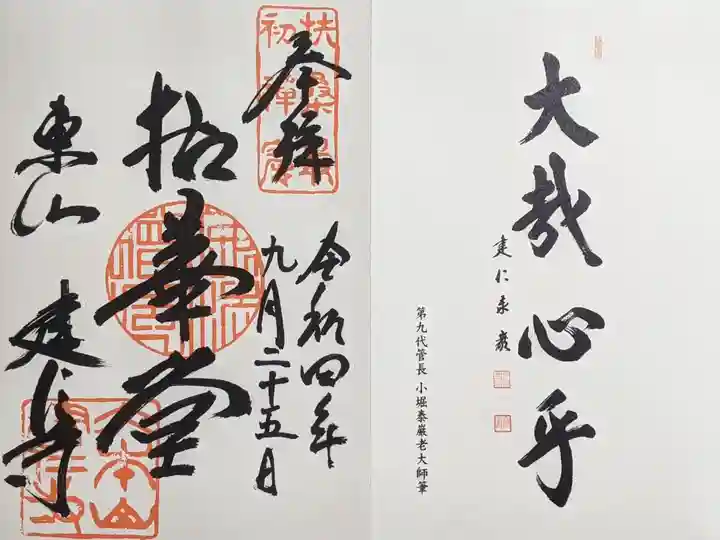 大哉心乎
建仁泰巖
第九代管長 小堀泰巖老大師筆
扶桑最
初禅窟
奉拝
令和四年
九月二十五日
拈華堂
東山 建仁寺
大本山
建仁寺